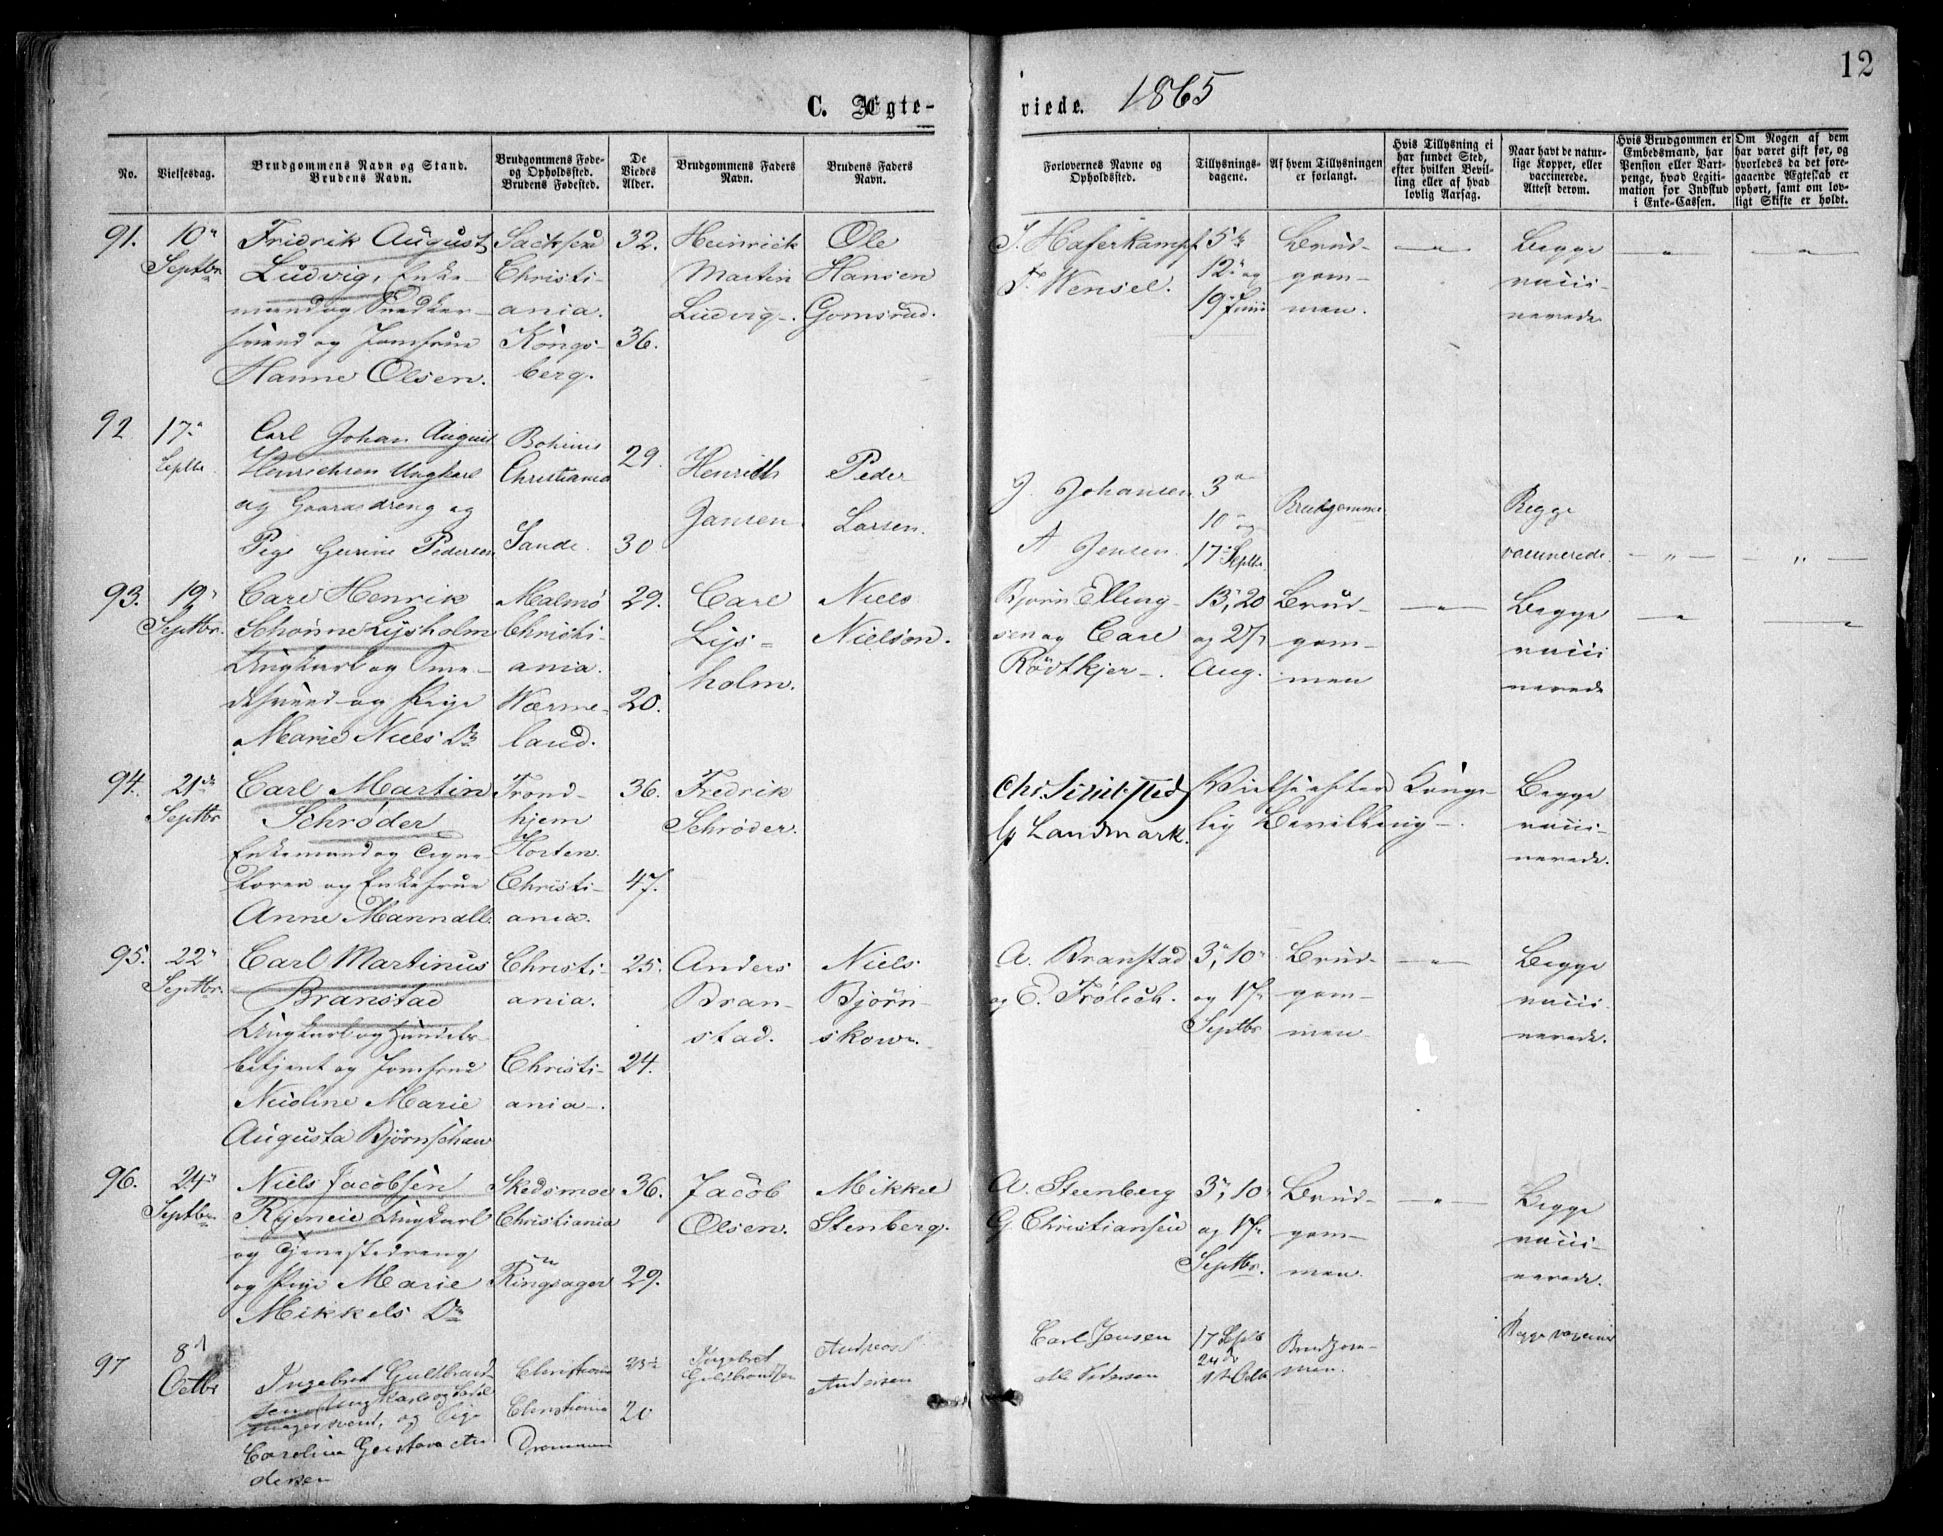 12
C. Ægteviede. 1865
No.
Vielsesdag.
Brudgommens Navn og Stand.
Brudens Navn.
Brudgommens Føde-
og Opholdssted.
Brudens Fødested.
De
Viedes
Alder.
Brudgommens Faders
Navn.
Brudens Faders
Navn.
Forlovernes Navne og
Opholdssted.
Tillysnings-
dagene.
Af hvem Tillysningen
er forlangt.
Hvis Tillysning ei
har fundet Sted,
efter hvilken Bevil-
ling eller af hvad
lovlig Aarsag.
Naar havt de natur-
lige Kopper, eller
vaccinerede.
Attest derom.
Hvis Brudgommen er
Embedsmand, har
Pension eller Vart-
penge, hvad Legiti-
mation for Indskud
i Enke-Cassen.
Om Nogen af dem
har været gift før, og
hvorledes da det fore-
gaaende Ægteskab er
ophørt, samt om lov-
ligt Skifte er holdt.
91.
10
Septbr
Fridrik August
Ludvig, Enke-
mand og Snedker-
svend og Jomfrue
Hanne Olsen.
Sachsen
Christi-
ania.
Kongs-
berg.
32.
36.
Heinrich
Martin
Ludvig.
Ole
Hansen
Gomsrud.
J. Haferkampf
F. Wensel.
5
12 og
19 Juni
Brud-
gom-
men.
Begge
vacci-
nerede
92
17
Septbr.
Carl Johan August
Henrichsen Ungkarl
og Gaardsdreng og
Pige Gurine Pedersen
Christiania
Sande.
29.
30
Henrich
Jansen
Peder
Larsen.
J. Johansen
A Jensen.
3
10 og
17 Septbr.
Brudgomme
Begge
vaccinerede
93.
19
Septbr.
Carl Henrik
Schønne Lysholm
Ungkarl og Sme-
desvend og Pige
Marie Niels Dtr
Malmø
Christi-
ania.
Værme-
land.
29.
20.
Carl
Lys-
holm.
Niels
Nielson.
Bjørn Elling-
sen og Carl
Rødtkjer.
13, 20
og 27
Aug.
Brud-
gom-
men
Begge
vacci
nerede
94.
21de
Septbr.
Carl Martin
Schrøder
Enkemand og
og Enkefrue
Anne Mannall.
Trond-
hjem
Horten.
Christi-
ania.
36.
47.
Fredrik
Schrøder.
Landmark.
Vielse efter Konge-
lig Bevilling.
Begge
vacci-
nerede.
95.
22
Septbr.
Carl Martinus
Branstad
Ungkarl og Handels-
betjent og Jomfrue
Nicoline Marie
Augusta Bjørnschau
Christi-
ania.
Christi-
ania.
25.
24.
Anders
Bran-
stad.
Niels
Bjørn-
skow.
A. Branstad
og E. Frølich.
3, 10
og 17
Septbr
Brud-
gom-
men
Begge
vacci-
nerede.
96.
24
Septbr
Niels Jacobsen
Ungkarl
og Tjenestedreng
og Pige Marie
Mikkels Dtr
Skedsmoe
Christiania
Ringsager
36.
29.
Jacob
Olsen.
Mikkel
Stenberg.
A. Steenberg
G. Christiansen
3, 10
og 17
Septbr.
Brud-
gom-
men.
Begge
vacci-
nerede.
97
8
Octbr
Ingebret Gulbrand-
sen, Ungkarl og
svend, og Pige
Caroline Gustava An
dersen
Christiania
Christiania
Drammen
20
Ingebret
Gulbrandsen
Andreas
Andersen
Carl Jensen
Pedersen
17 Septb
24
1 Octb
Brudgom-
men.
Begge